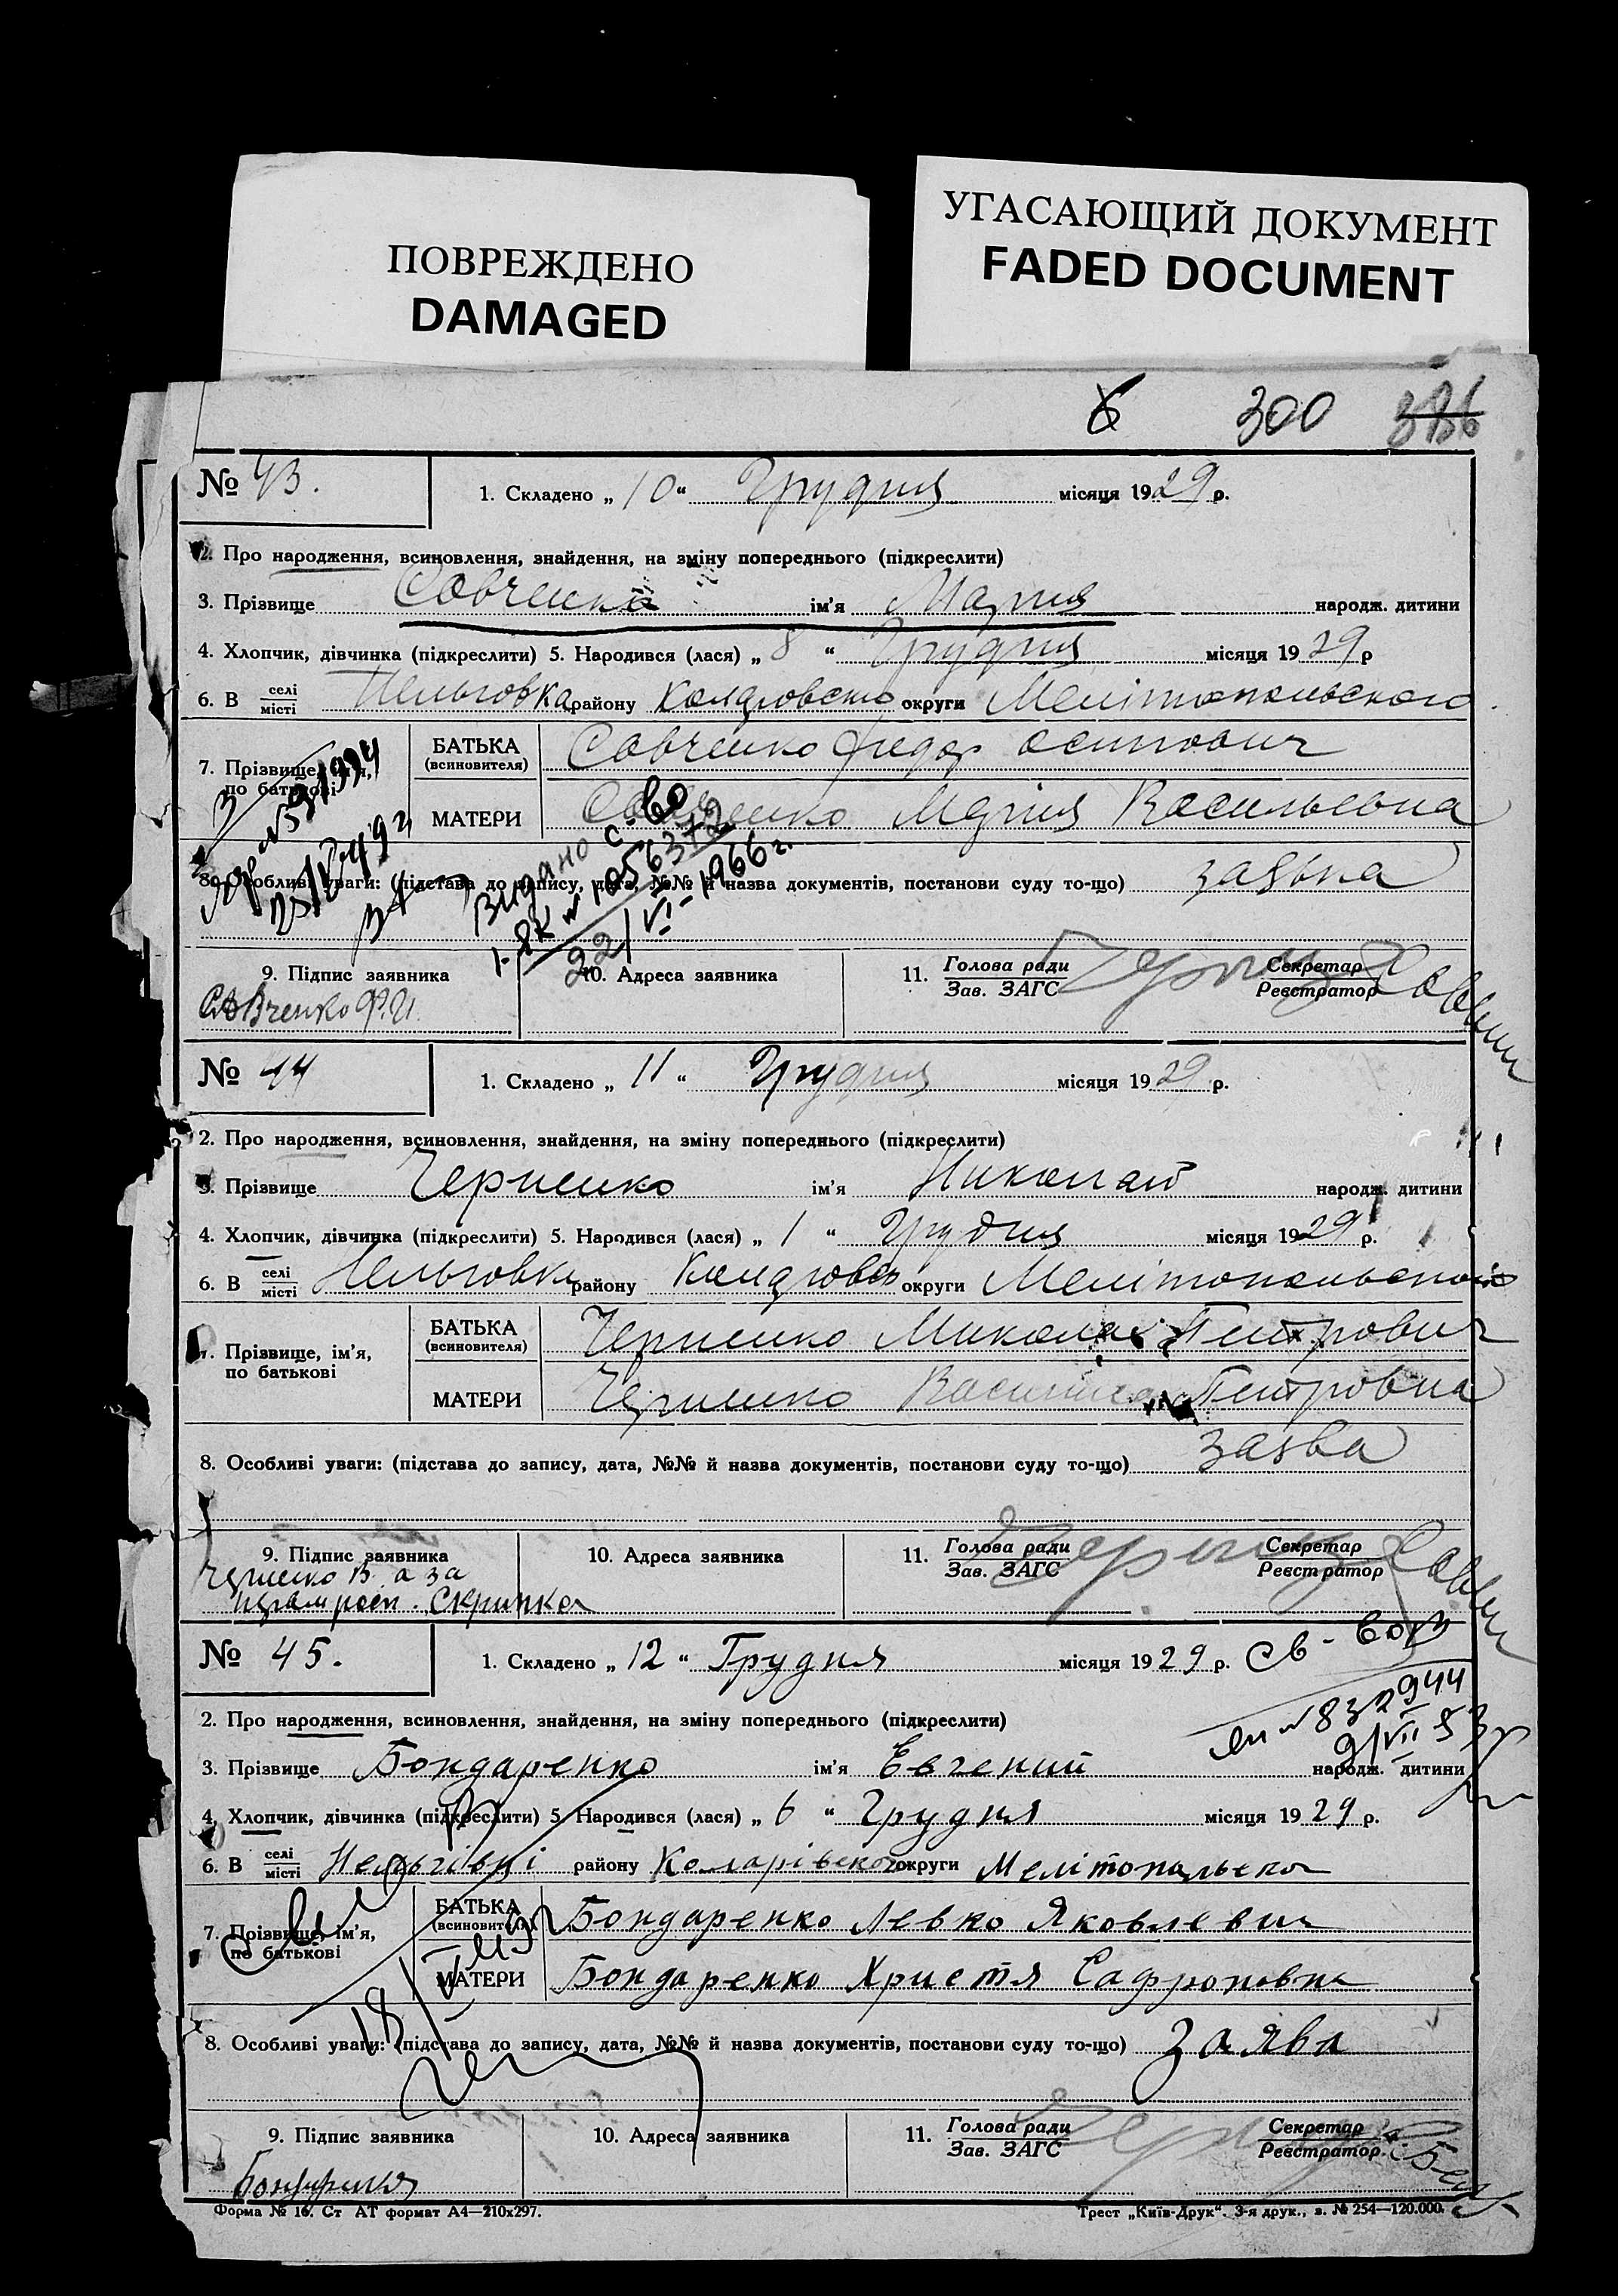 ПОВРЕЖДЕНО
DAMAGED
УГАСАЮЩИЙ ДОКУМЕНТ
FADED DOCUMENT
300
№ 43.
1. Складено „ 10 “ Грудня місяця 1929 р.
2. Про народження, всиновлення, знайдення, на зміну попереднього (підкреслити)
3. Прізвище Савченко ім'я Мария народж. дитини
4. Хлопчик, дівчинка (підкреслити) 5. Народився (лася) „ 8 “ Грудня місяця 1929 р
6. В селі місті Нельговка району округи Мелітопольского
7. Прізвище, ім'я, по батькові
БАТЬКА (всиновителя) Савченко Федор Осипович
МАТЕРИ Савченко Мария Васильевна
8. Особливі уваги: (підстава до запису, дата, №№ й назва документів, постанови суду то-що) заявка
Видано с-во
№ 1056372
22/VI-1966 г.
9. Підпис заявника
10. Адреса заявника
11. Голова ради Зав. ЗАГС
Секретар Реєстратор
Савченко Ф.И.
№ 44
1. Складено „ 11 “ Грудня місяця 1929 р.
2. Про народження, всиновлення, знайдення, на зміну попереднього (підкреслити)
3. Прізвище Черненко ім'я Николай народж. дитини
4. Хлопчик, дівчинка (підкреслити) 5. Народився (лася) „ 1 “ Грудня місяця 1929 р.
6. В селі місті Нельговка району округи Мелітопольского
7. Прізвище, ім'я, по батькові
БАТЬКА (всиновителя) Черненко Микола Петрович
МАТЕРИ Черненко Петровна
8. Особливі уваги: (підстава до запису, дата, №№ й назва документів, постанови суду то-що) заява
9. Підпис заявника
10. Адреса заявника
11. Голова ради Зав. ЗАГС
Секретар Реєстратор
Черненко В. а за
Скрипка
№ 45.
1. Складено „ 12 “ Грудня місяця 1929 р. св-во
№ 832944
9/VII 53
2. Про народження, всиновлення, знайдення, на зміну попереднього (підкреслити)
3. Прізвище Бондаренко ім'я Евгений народж. дитини
4. Хлопчик, дівчинка (підкреслити) 5. Народився (лася) „ 6 “ Грудня місяця 1929 р.
6. В селі місті Нельгівці району Коларівского округи Мелітопольско
7. Прізвище, ім'я, по батькові
БАТЬКА (всиновителя) Бондаренко Левко Яковлевич
МАТЕРИ Бондаренко Христя Сафроновна
8. Особливі уваги: (підстава до запису, дата, №№ й назва документів, постанови суду то-що) заява
9. Підпис заявника
10. Адреса заявника
11. Голова ради Зав. ЗАГС
Секретар Реєстратор
Форма № 16. Ст АТ формат А4—210х297.
Трест „Київ-Друк“. 3-я друк., з. № 254—120.000.